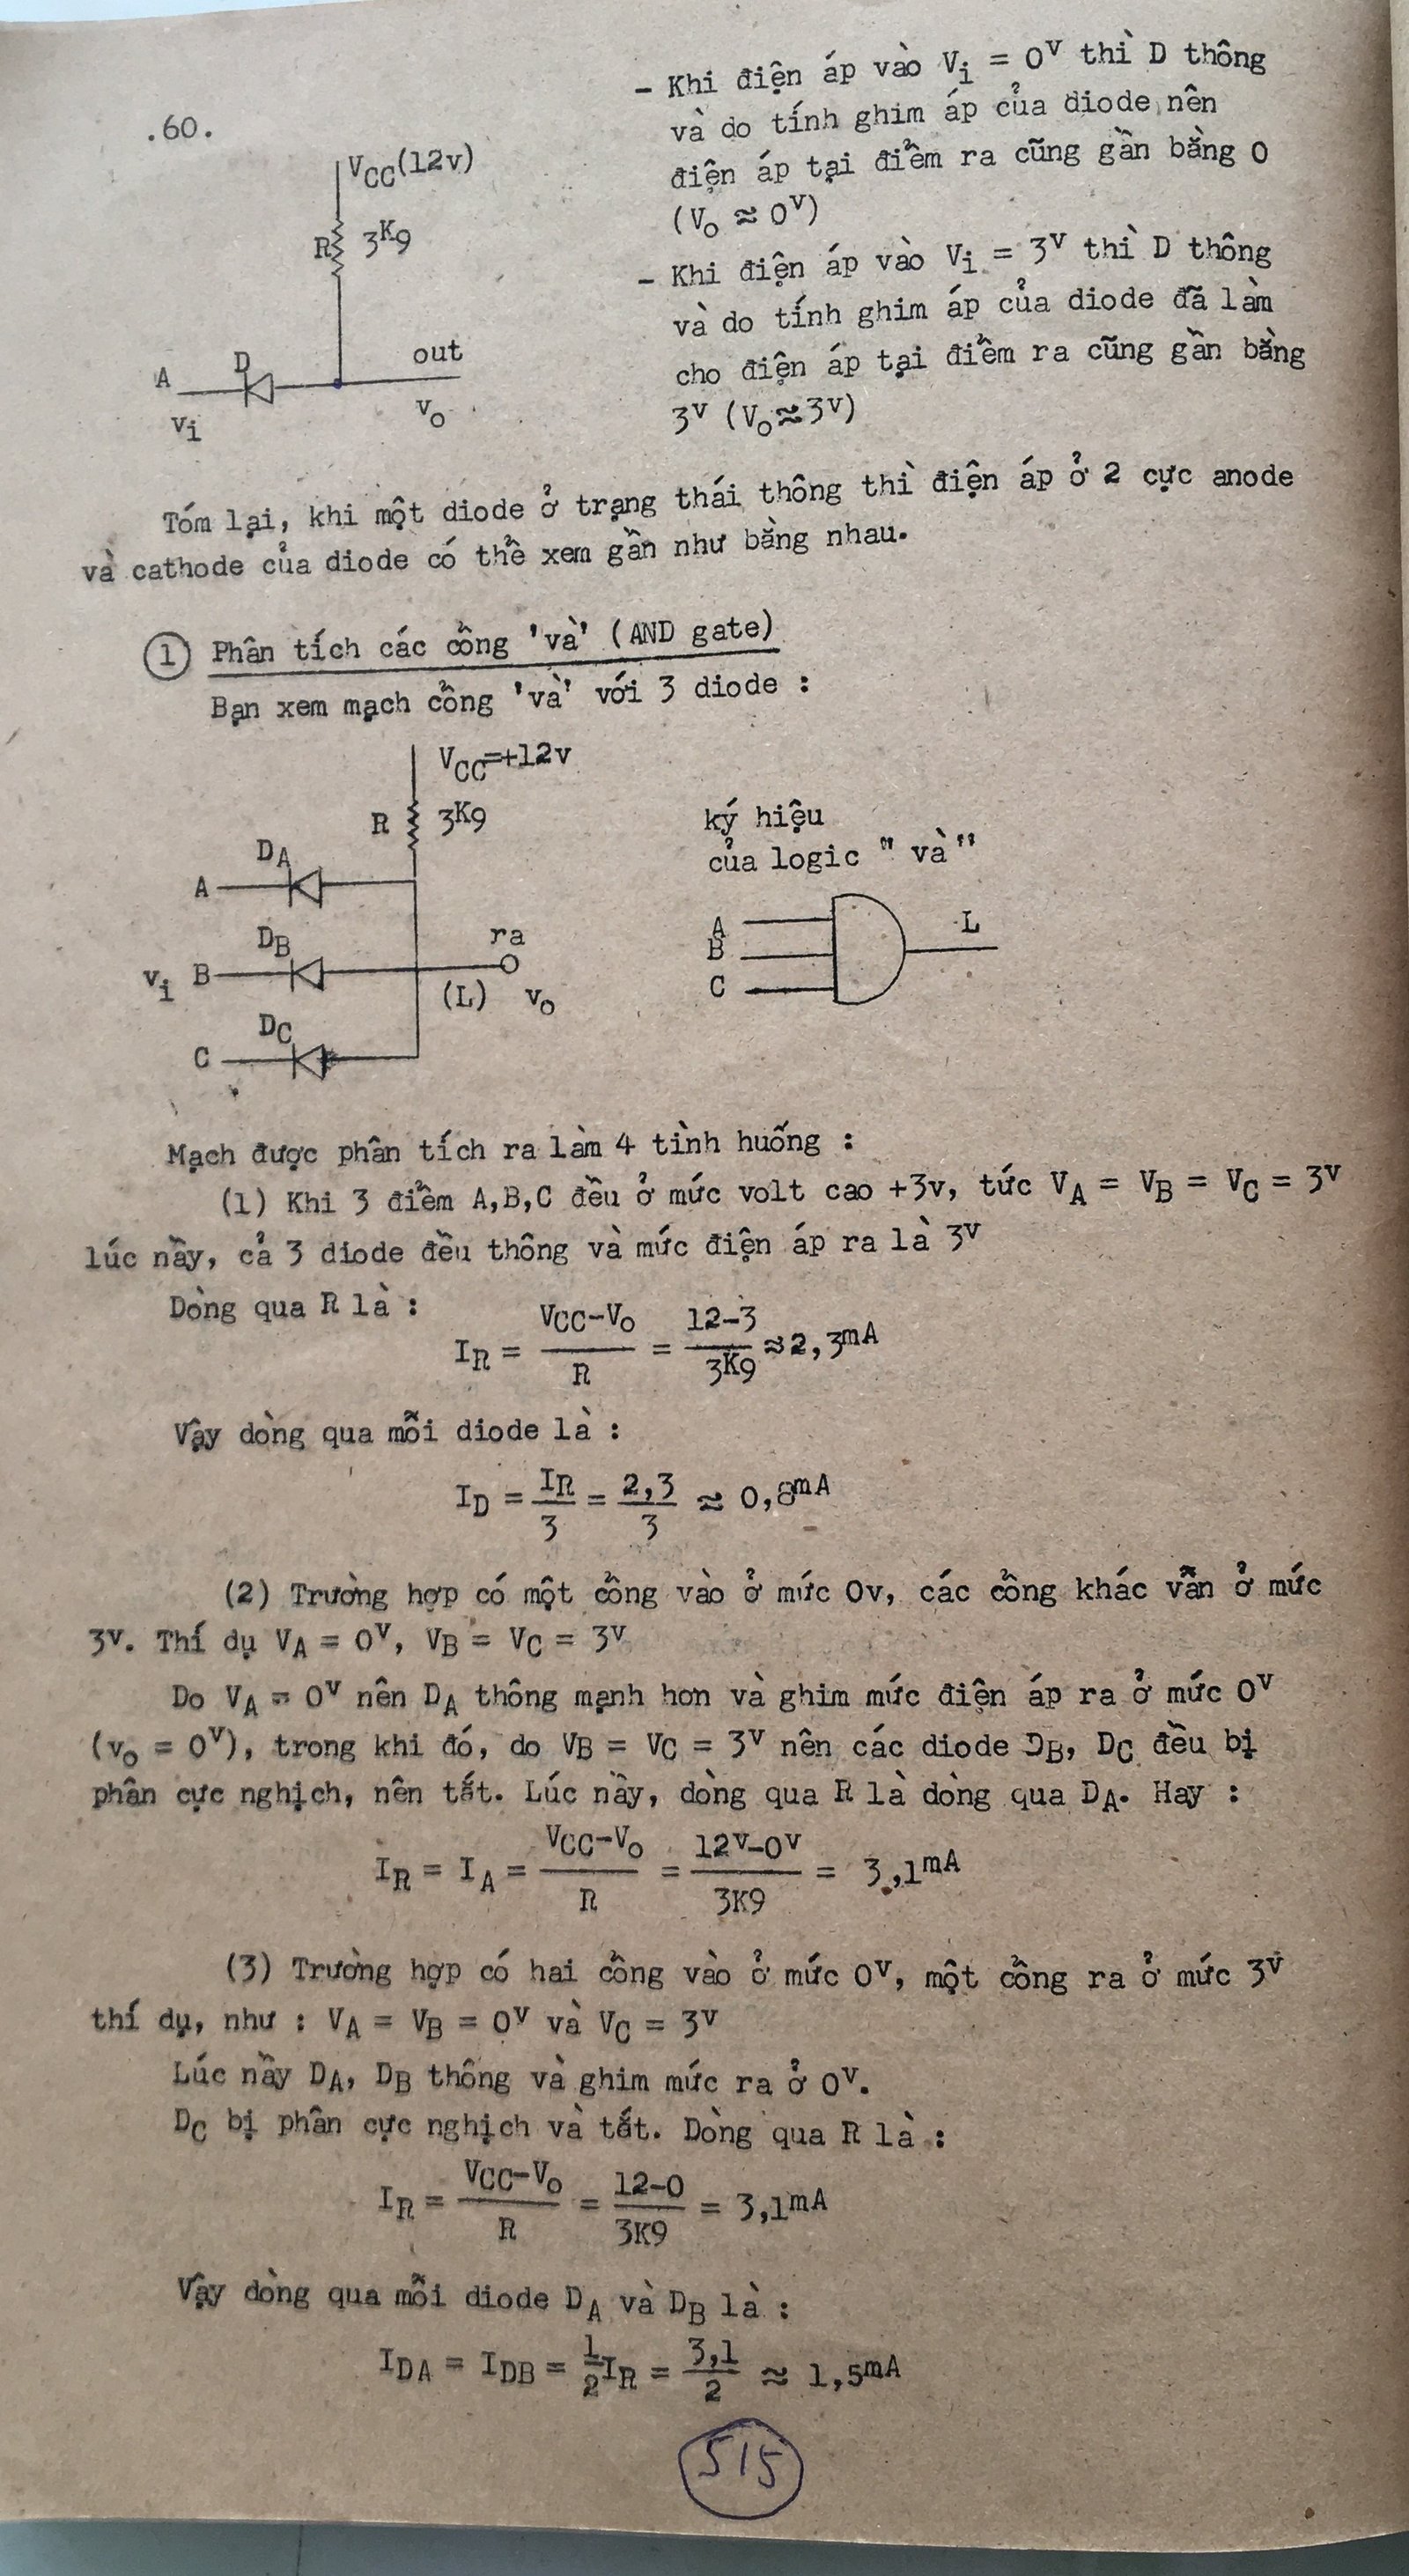 .60.
V_CC(12v)
R 3K9
A D out
Vi Vo
- Khi điện áp vào Vi = 0V thì D thông
và do tính ghim áp của diode nên
điện áp tại điểm ra cũng gần bằng 0
(Vo ≈ 0V)
- Khi điện áp vào Vi = 3V thì D thông
và do tính ghim áp của diode đã làm
cho điện áp tại điểm ra cũng gần bằng
3V (Vo≈3V)
Tóm lại, khi một diode ở trạng thái thông thì điện áp ở 2 cực anode
và cathode của diode có thể xem gần như bằng nhau.
1 Phân tích các cổng 'và' (AND gate)
Bạn xem mạch cổng 'và' với 3 diode :
VCC=+12v
R 3K9
DA
A
DB ra
vi B
(L) vo
DC
C
ký hiệu
của logic " và"
A
B
C
L
Mạch được phân tích ra làm 4 tình huống :
(1) Khi 3 điểm A,B,C đều ở mức volt cao +3v, tức VA = VB = VC = 3V
lúc nầy, cả 3 diode đều thông và mức điện áp ra là 3V
Dòng qua R là :
IR = (VCC-Vo)/R = (12-3)/3K9 ≈2,3mA
Vậy dòng qua mỗi diode là :
ID = IR/3 = 2,3/3 ≈ 0,8mA
(2) Trường hợp có một cổng vào ở mức 0v, các cổng khác vẫn ở mức
3V. Thí dụ VA = 0V, VB = VC = 3V
Do VA = 0V nên DA thông mạnh hơn và ghim mức điện áp ra ở mức 0V
(vo = 0V), trong khi đó, do VB = VC = 3V nên các diode DB, DC đều bị
phân cực nghịch, nên tắt. Lúc nầy, dòng qua R là dòng qua DA. Hay :
IR = IA = (VCC-Vo)/R = (12V-0V)/3K9 = 3,1mA
(3) Trường hợp có hai cổng vào ở mức 0V, một cổng ra ở mức 3V
thí dụ, như : VA = VB = 0V và VC = 3V
Lúc nầy DA, DB thông và ghim mức ra ở 0V.
DC bị phân cực nghịch và tắt. Dòng qua R là :
IR = (VCC-Vo)/R = (12-0)/3K9 = 3,1mA
Vậy dòng qua mỗi diode DA và DB là :
IDA = IDB = 1/2IR = 3,1/2 ≈ 1,5mA
515